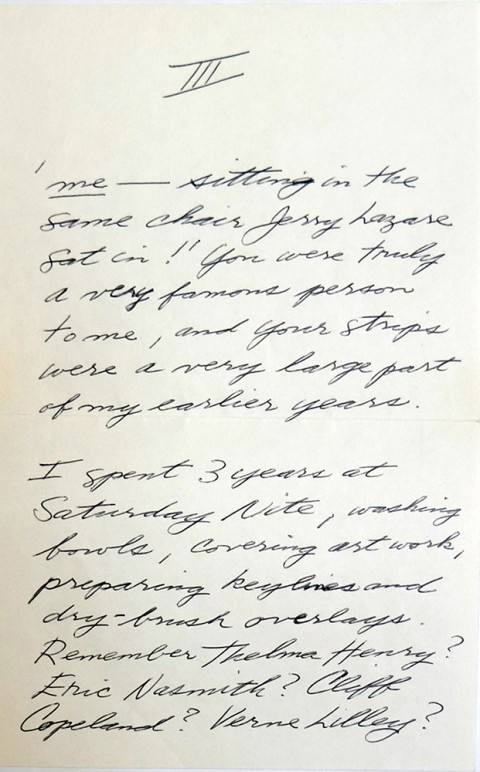 III
'me — sitting in the
same chair Jerry Lazare
sat in!!' You were truly
a very famous person
to me, and your strips
were a very large part
of my earlier years.
I spent 3 years at
Saturday Nite, washing
bowls, covering art work,
preparing keylines and
dry-brush overlays.
Remember Thelma Henry?
Eric Nasmith? Cliff
Copeland? Verne Lilley?